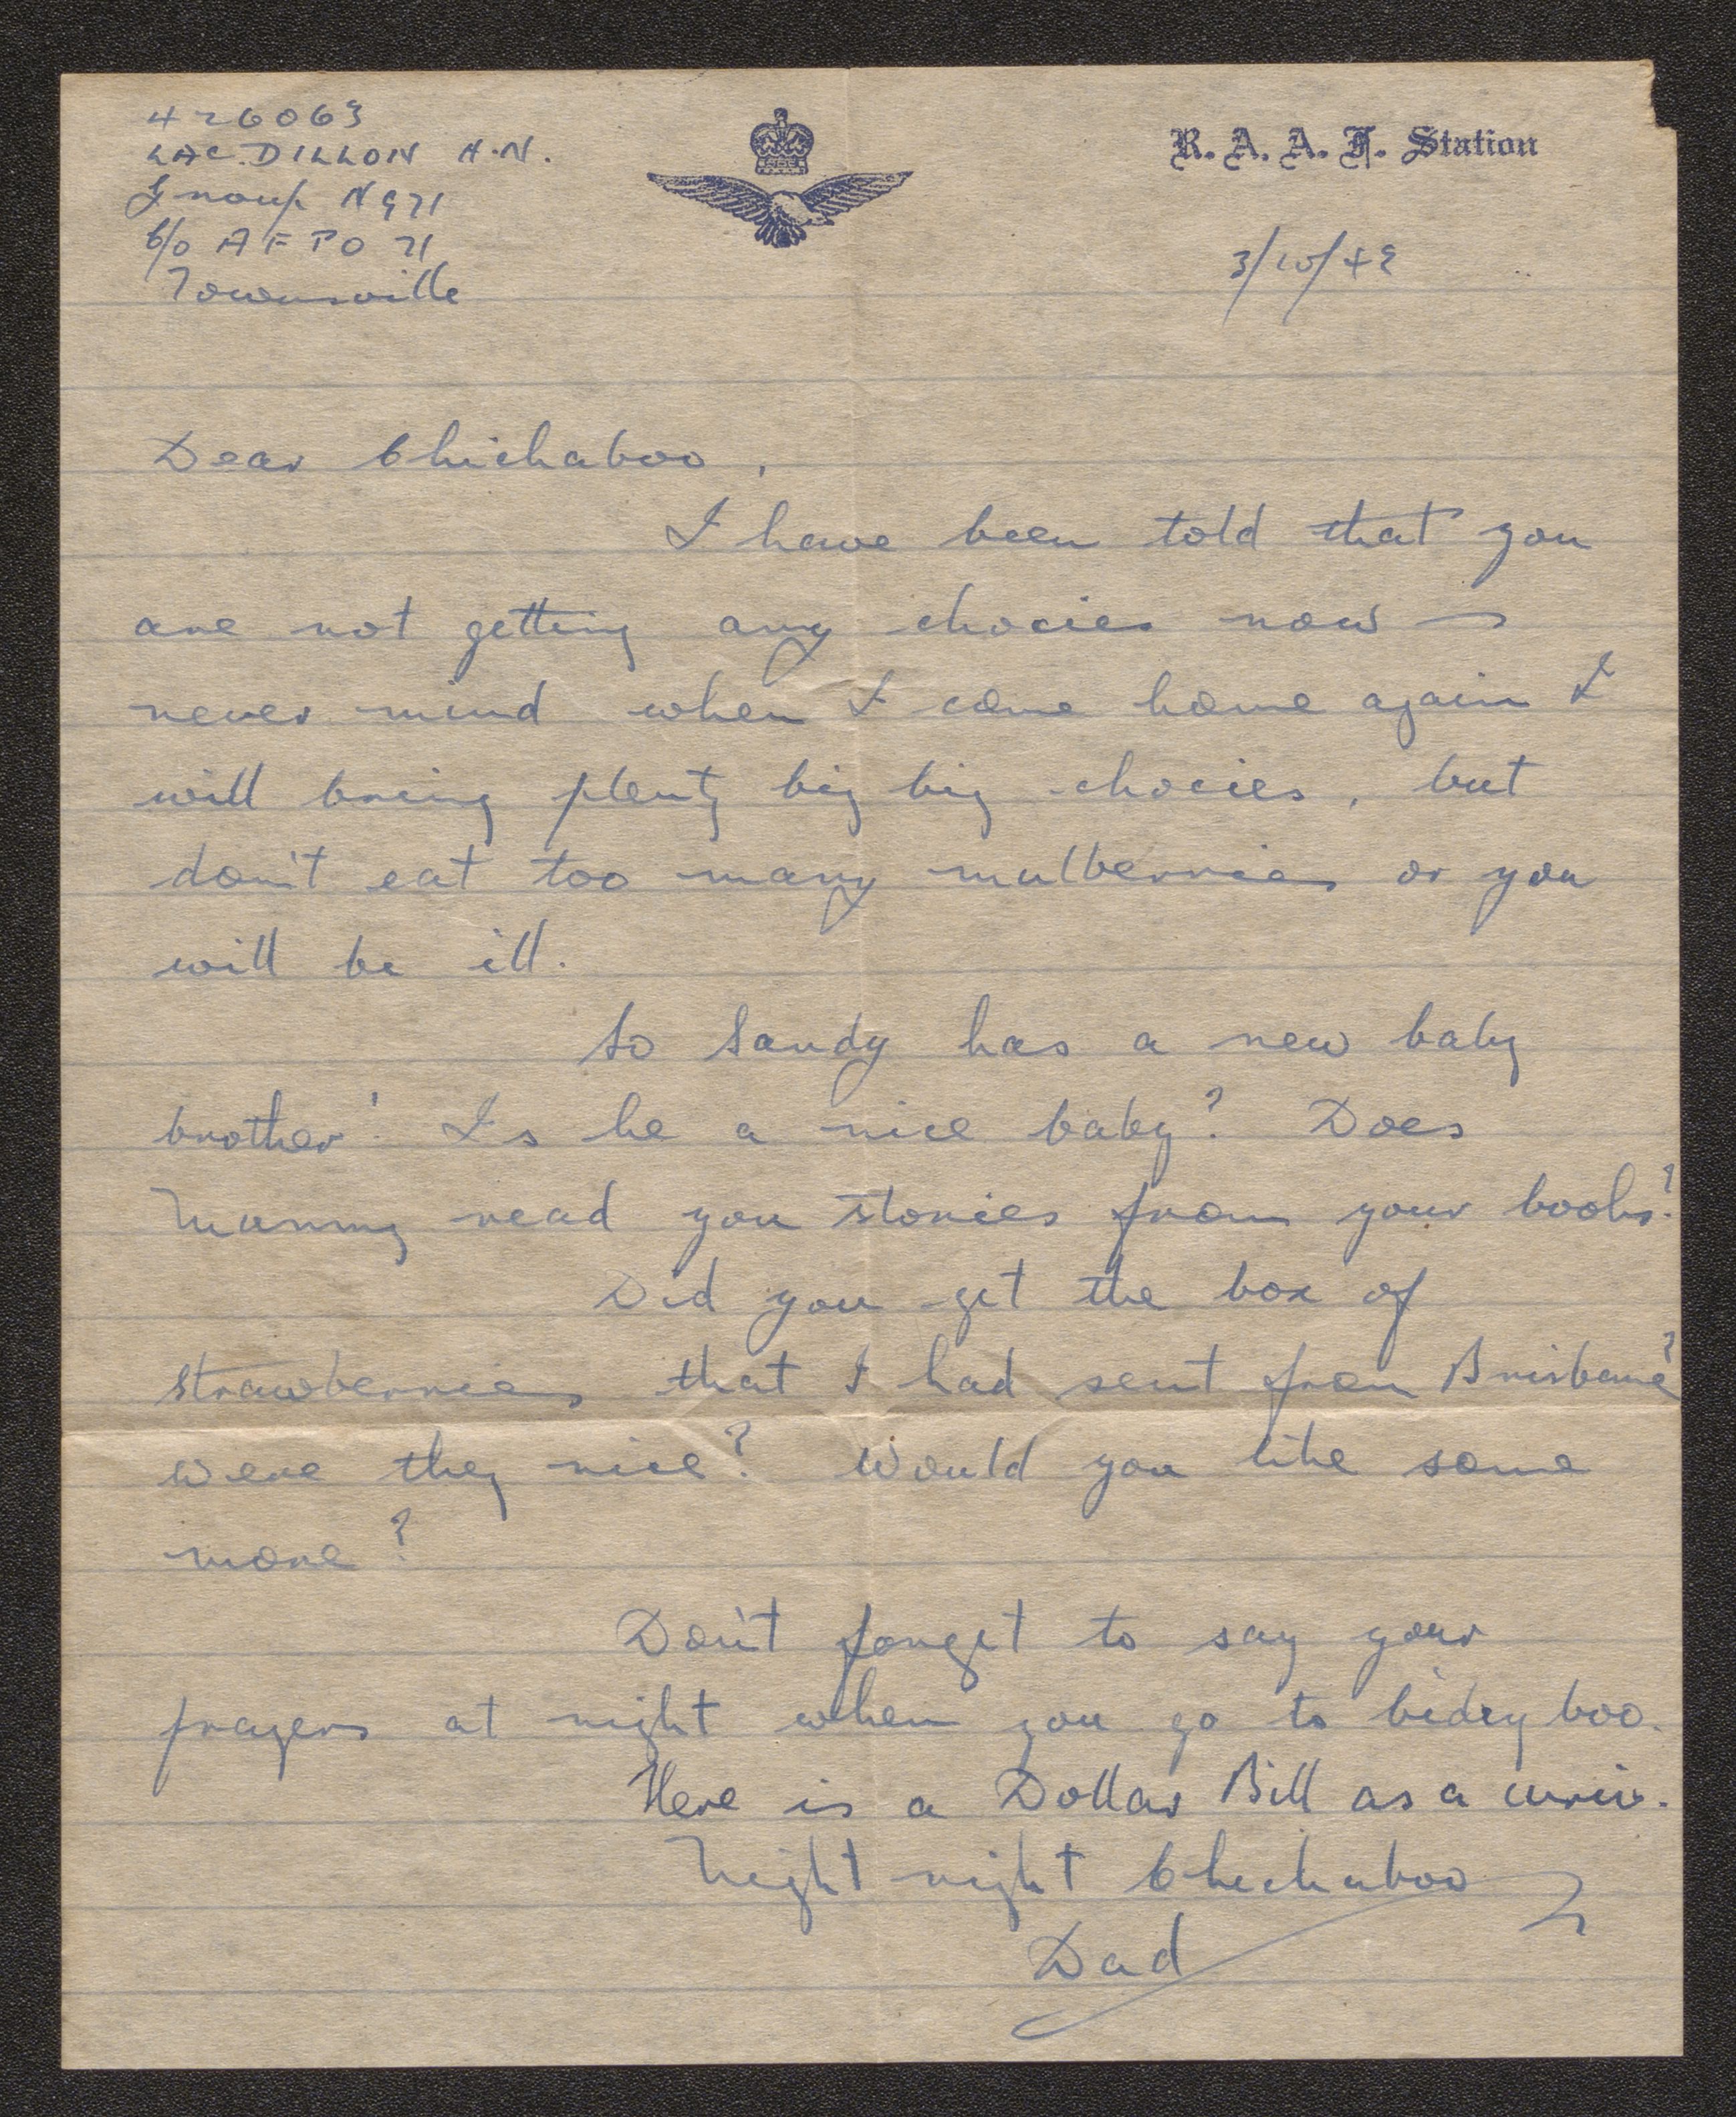 426063
LAC. DILLON H.N.
Group N971
C/o A F P O 71
Townsville
R. A. A. F. Station
3/10/42
Dear Chickaboo,
I have been told that you
are not getting any chocies now —
never mind when I come home again I
will bring plenty big big chocies, but
don't eat too many mulberries or you
will be ill.
So Sandy has a new baby
brother! Is he a nice baby? Does
Mummy read you stories from your books?
Did you get the box of
strawberries that I had sent from Brisbane?
were they nice? Would you like some
more?
Don't forget to say your
prayers at night when you go to bidey boo.
Here is a Dollar Bill as a curio.
Night night Chickaboo
Dad